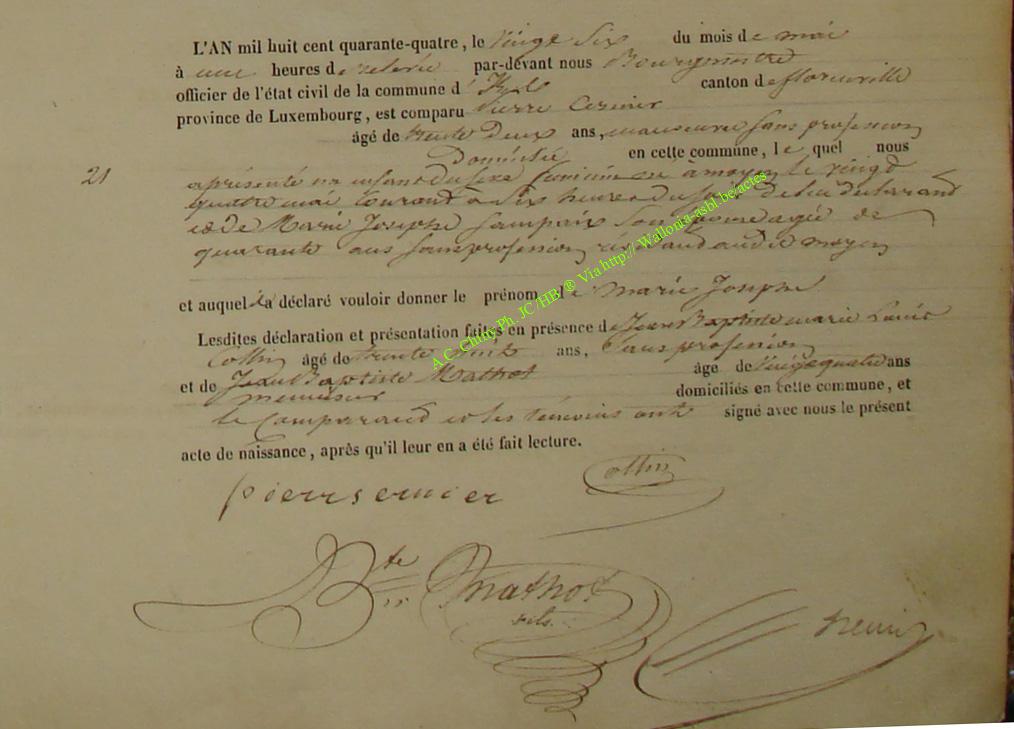 L'AN mil huit cent quarante-quatre, le vingt Six du mois de mai
à une heures de relevée par-dévant nous Bourgmestre
officier de l'état civil de la commune d' canton de florenville
province de Luxembourg, est comparu Pierre
âgé de trente Deux ans, manoeuvre sans profession
Domicilié en cette commune, le quel nous
21
a présenté un enfant du sexe feminin né a moyen le vingt
quatre mai courant a Six heures du soir de lui declarant
et de Marie Joseph Sampaix Son agée de
quarante ans sans profession audit moyen
et auquel il a déclaré vouloir donner le prénom de marie Joseph
Lesdites déclaration et présentation faites en présence de Jean Baptiste marie Louis
Collin âgé de trente ans, Sans profession
et de Jean Baptiste Mathot âgé de vingt quatre ans
menuisier domiciliés en cette commune, et
le Comparant et les témoins ont signé avec nous le présent
acte de naissance, après qu'il leur en a été fait lecture.
pierr sernier
Collin
Bte Mathot
fils
A.C. Chiny Ph. JC /HB ® Via http:// Wallonia-asbl.be/actes